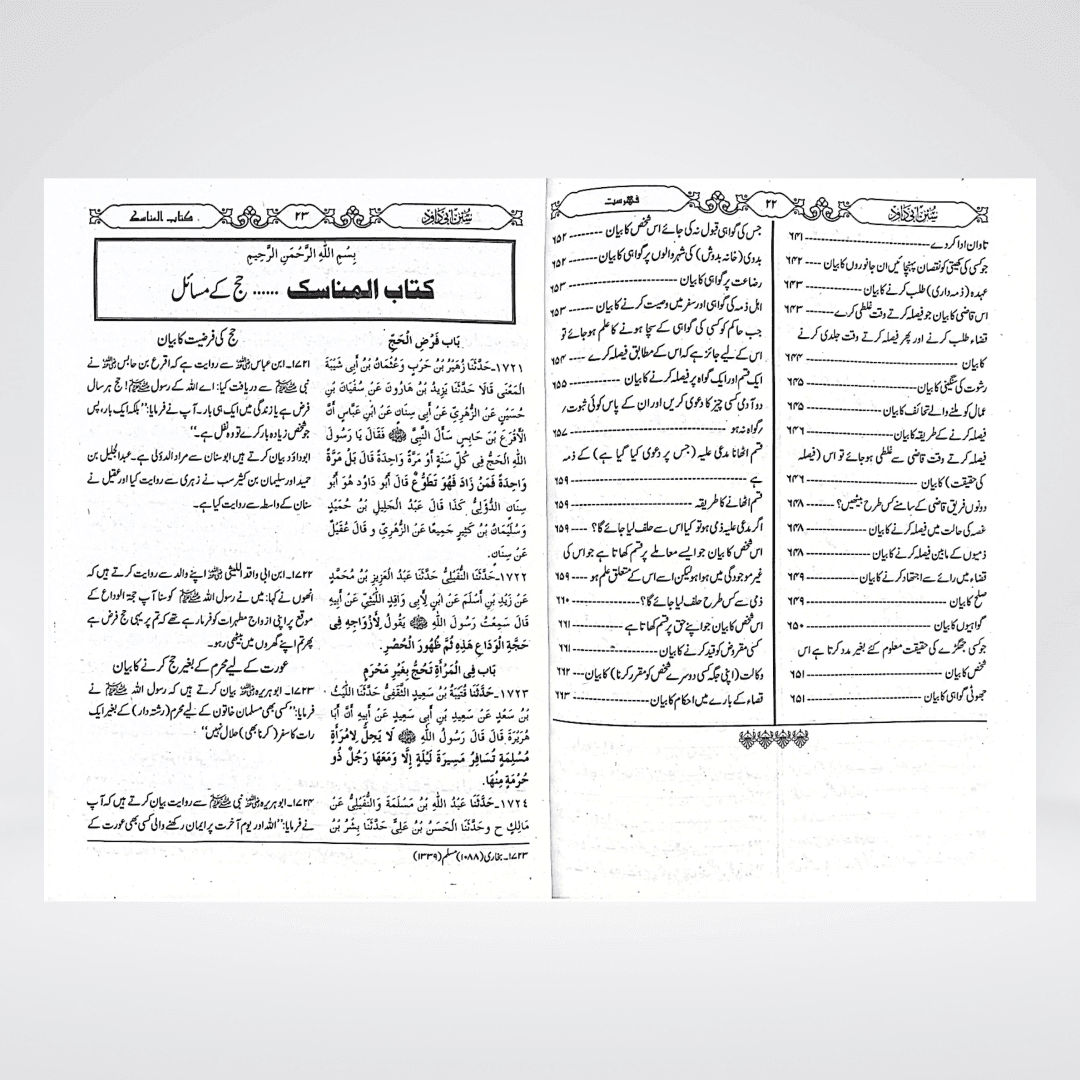 سنن ابی داؤد
۲۲
فہرست
تاوان ادا کر دے ---------- ۶۴۱
جو کسی کی کھیتی کو نقصان پہنچائیں ان جانوروں کا بیان ---- ۶۴۲
عہدہ (ذمہ داری) طلب کرنے کا بیان ---------- ۶۴۳
اس قاضی کا بیان جو فیصلہ کرتے وقت غلطی کرے ---- ۶۴۳
قضاء طلب کرنے اور پھر فیصلہ کرتے وقت جلدی کرنے
کا بیان ---------- ۶۴۴
رشوت کی سنگینی کا بیان ---------- ۶۴۵
عمال کو ملنے والے تحائف کا بیان ---------- ۶۴۵
فیصلہ کرنے کے طریقہ کا بیان ---------- ۶۴۶
فیصلہ کرتے وقت قاضی سے غلطی ہو جائے تو اس (فیصلہ
کی حقیقت) کا بیان ---------- ۶۴۶
دونوں فریق قاضی کے سامنے کس طرح بیٹھیں؟ ------ ۶۴۸
غصہ کی حالت میں فیصلہ کرنے کا بیان ---------- ۶۴۸
ذمیوں کے مابین فیصلہ کرنے کا بیان ---------- ۶۴۸
قضاء میں رائے سے اجتہاد کرنے کا بیان ---------- ۶۴۹
صلح کا بیان ---------- ۶۴۹
گواہیوں کا بیان ---------- ۶۵۰
جو کسی جھگڑے کی حقیقت معلوم کئے بغیر مدد کرتا ہے اس
شخص کا بیان ---------- ۶۵۱
جھوٹی گواہی کا بیان ---------- ۶۵۱
جس کی گواہی قبول نہ کی جائے اس شخص کا بیان -------- ۶۵۲
بدوی (خانہ بدوش) کی شہر والوں پر گواہی کا بیان ------ ۶۵۲
رضاعت پر گواہی کا بیان ---------- ۶۵۳
اہل ذمہ کی گواہی اور سفر میں وصیت کرنے کا بیان ---- ۶۵۳
جب حاکم کو کسی کی گواہی کے سچا ہونے کا علم ہو جائے تو
اس کے لیے جائز ہے کہ اس کے مطابق فیصلہ کرے ---- ۶۵۴
ایک قسم اور ایک گواہ پر فیصلہ کرنے کا بیان -------- ۶۵۵
دو آدمی کسی چیز کا دعوی کریں اور ان کے پاس کوئی ثبوت ر
رگواہ نہ ہو ---------- ۶۵۷
قسم اٹھانا مدعی علیہ (جس پر دعوی کیا گیا ہے) کے ذمہ
ہے ---------- ۶۵۹
قسم اٹھانے کا طریقہ ---------- ۶۵۹
اگر مدعی علیہ ذمی ہو تو کیا اس سے حلف لیا جائے گا؟ ---- ۶۵۹
اس شخص کا بیان جو ایسے معاملے پر قسم کھاتا ہے جو اس کی
غیر موجودگی میں ہوا ہو لیکن اسے اس کے متعلق علم ہو ---- ۶۵۹
ذمی سے کس طرح حلف لیا جائے گا؟ ---------- ۶۶۰
اس شخص کا بیان جو اپنے حق پر قسم کھاتا ہے -------- ۶۶۱
کسی مقروض کو قید کرنے کا بیان ---------- ۶۶۱
وکالت (اپنی جگہ کسی دوسرے شخص کو مقرر کرنا) کا بیان --- ۶۶۲
قضاء کے بارے میں احکام کا بیان ---------- ۶۶۳
سنن ابی داؤد
۲۳
کتاب المناسک
بِسْمِ اللّٰهِ الرَّحْمٰنِ الرَّحِيْمِ
کتاب المناسک ...... حج کے مسائل
بَاب فَرْضِ الْحَجِّ
١٧٢١۔حَدَّثَنَا زُهَيْرُ بْنُ حَرْبٍ وَعُثْمَانُ بْنُ أَبِي شَيْبَةَ
الْمَعْنَى قَالَا حَدَّثَنَا يَزِيدُ بْنُ هَارُونَ عَنْ سُفْيَانَ بْنِ
حُسَيْنٍ عَنِ الزُّهْرِيِّ عَنْ أَبِي سِنَانٍ عَنِ ابْنِ عَبَّاسٍ أَنَّ
الْأَقْرَعَ بْنَ حَابِسٍ سَأَلَ النَّبِيَّ ﷺ فَقَالَ يَا رَسُولَ
اللّٰهِ الْحَجُّ فِي كُلِّ سَنَةٍ أَوْ مَرَّةً وَاحِدَةً قَالَ بَلْ مَرَّةً
وَاحِدَةً فَمَنْ زَادَ فَهُوَ تَطَوُّعٌ قَالَ أَبُو دَاوُد هُوَ أَبُو
سِنَانٍ الدُّؤَلِيُّ كَذَا قَالَ عَبْدُ الْجَلِيلِ بْنُ حُمَيْدٍ
وَسُلَيْمَانُ بْنُ كَثِيرٍ جَمِيعًا عَنِ الزُّهْرِيِّ و قَالَ عُقَيْلٌ
عَنْ سِنَانٍ.
١٧٢٢۔حَدَّثَنَا النُّفَيْلِيُّ حَدَّثَنَا عَبْدُ الْعَزِيزِ بْنُ مُحَمَّدٍ
عَنْ زَيْدِ بْنِ أَسْلَمَ عَنِ ابْنٍ لِأَبِي وَاقِدٍ اللَّيْثِيِّ عَنْ أَبِيهِ
قَالَ سَمِعْتُ رَسُولَ اللّٰهِ ﷺ يَقُولُ لِأَزْوَاجِهِ فِي
حَجَّةِ الْوَدَاعِ هَذِهِ ثُمَّ ظُهُورَ الْحُصُرِ.
بَاب فِي الْمَرْأَةِ تَحُجُّ بِغَيْرِ مَحْرَمٍ
١٧٢٣۔حَدَّثَنَا قُتَيْبَةُ بْنُ سَعِيدٍ الثَّقَفِيُّ حَدَّثَنَا اللَّيْثُ
بْنُ سَعْدٍ عَنْ سَعِيدِ بْنِ أَبِي سَعِيدٍ عَنْ أَبِيهِ أَنَّ أَبَا
هُرَيْرَةَ قَالَ قَالَ رَسُولُ اللّٰهِ ﷺ لَا يَحِلُّ لِامْرَأَةٍ
مُسْلِمَةٍ تُسَافِرُ مَسِيرَةَ لَيْلَةٍ إِلَّا وَمَعَهَا رَجُلٌ ذُو
حُرْمَةٍ مِنْهَا.
١٧٢٤۔حَدَّثَنَا عَبْدُ اللّٰهِ بْنُ مَسْلَمَةَ وَالنُّفَيْلِيُّ عَنْ
مَالِكٍ ح وحَدَّثَنَا الْحَسَنُ بْنُ عَلِيٍّ حَدَّثَنَا بِشْرُ بْنُ
حج کی فرضیت کا بیان
۱۷۲۱۔ابن عباسؓ سے روایت ہے کہ اقرع بن حابسؓ نے
نبی ﷺ سے دریافت کیا: اے اللہ کے رسول ﷺ! حج ہر سال
فرض ہے یا زندگی میں ایک ہی بار۔ آپ نے فرمایا: ’’بلکہ ایک بار، پس
جو شخص زیادہ بار کرے تو وہ نفل ہے۔‘‘
ابوداؤد بیان کرتے ہیں ابوسنان سے مراد الدؤلی ہے۔ عبدالجلیل بن
حمید اور سلیمان بن کثیر سب نے زہری سے روایت کیا اور عقیل نے
سنان کے واسطہ سے روایت کیا ہے۔
۱۷۲۲۔ابن ابی واقد اللیثیؓ اپنے والد سے روایت کرتے ہیں کہ
انھوں نے کہا: میں نے رسول اللہ ﷺ کو سنا آپ حجۃ الوداع کے
موقع پر اپنی ازواج مطہرات کو فرما رہے تھے کہ تم پر یہی حج فرض ہے
پھر تم اپنے گھروں میں بیٹھی رہو۔
عورت کے لیے محرم کے بغیر حج کرنے کا بیان
۱۷۲۳۔ابوہریرہؓ بیان کرتے ہیں کہ رسول اللہ ﷺ نے
فرمایا: ’’کسی بھی مسلمان خاتون کے لیے محرم (رشتہ دار) کے بغیر ایک
رات کا سفر (کرنا بھی) حلال نہیں‘‘
۱۷۲۴۔ابوہریرہؓ نبی ﷺ سے روایت بیان کرتے ہیں کہ آپ
نے فرمایا: ’’اللہ اور یوم آخرت پر ایمان رکھنے والی کسی بھی عورت کے
۱۷۲۳۔بخاری (۱۰۸۸) مسلم (۱۳۳۹)